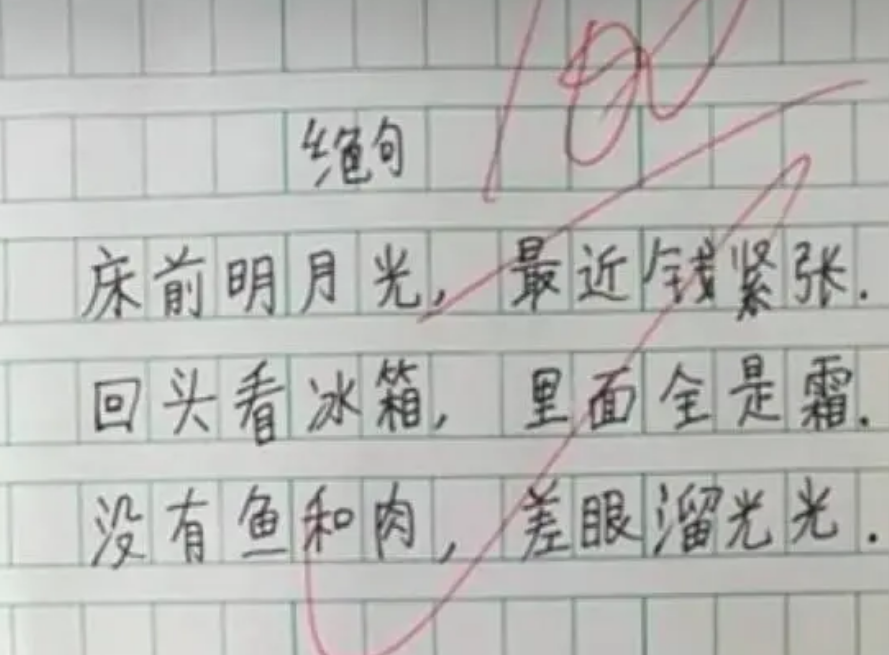 100
绝句
床前明月光,最近钱紧张.
回头看冰箱,里面全是霜.
没有鱼和肉,差眼溜光光.